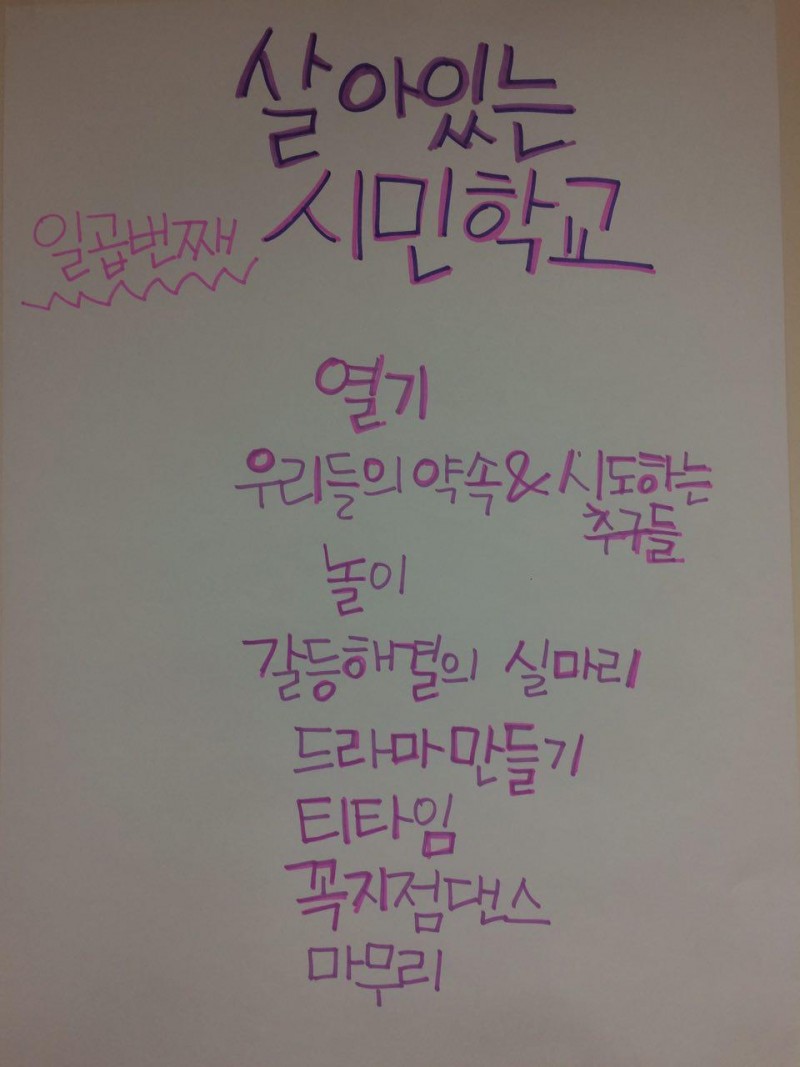 살아있는
일곱번째 시민학교
열기
우리들의 약속 & 시도하는
추구들
놀이
갈등해결의 실마리
드라마 만들기
티타임
꼭지점댄스
마무리